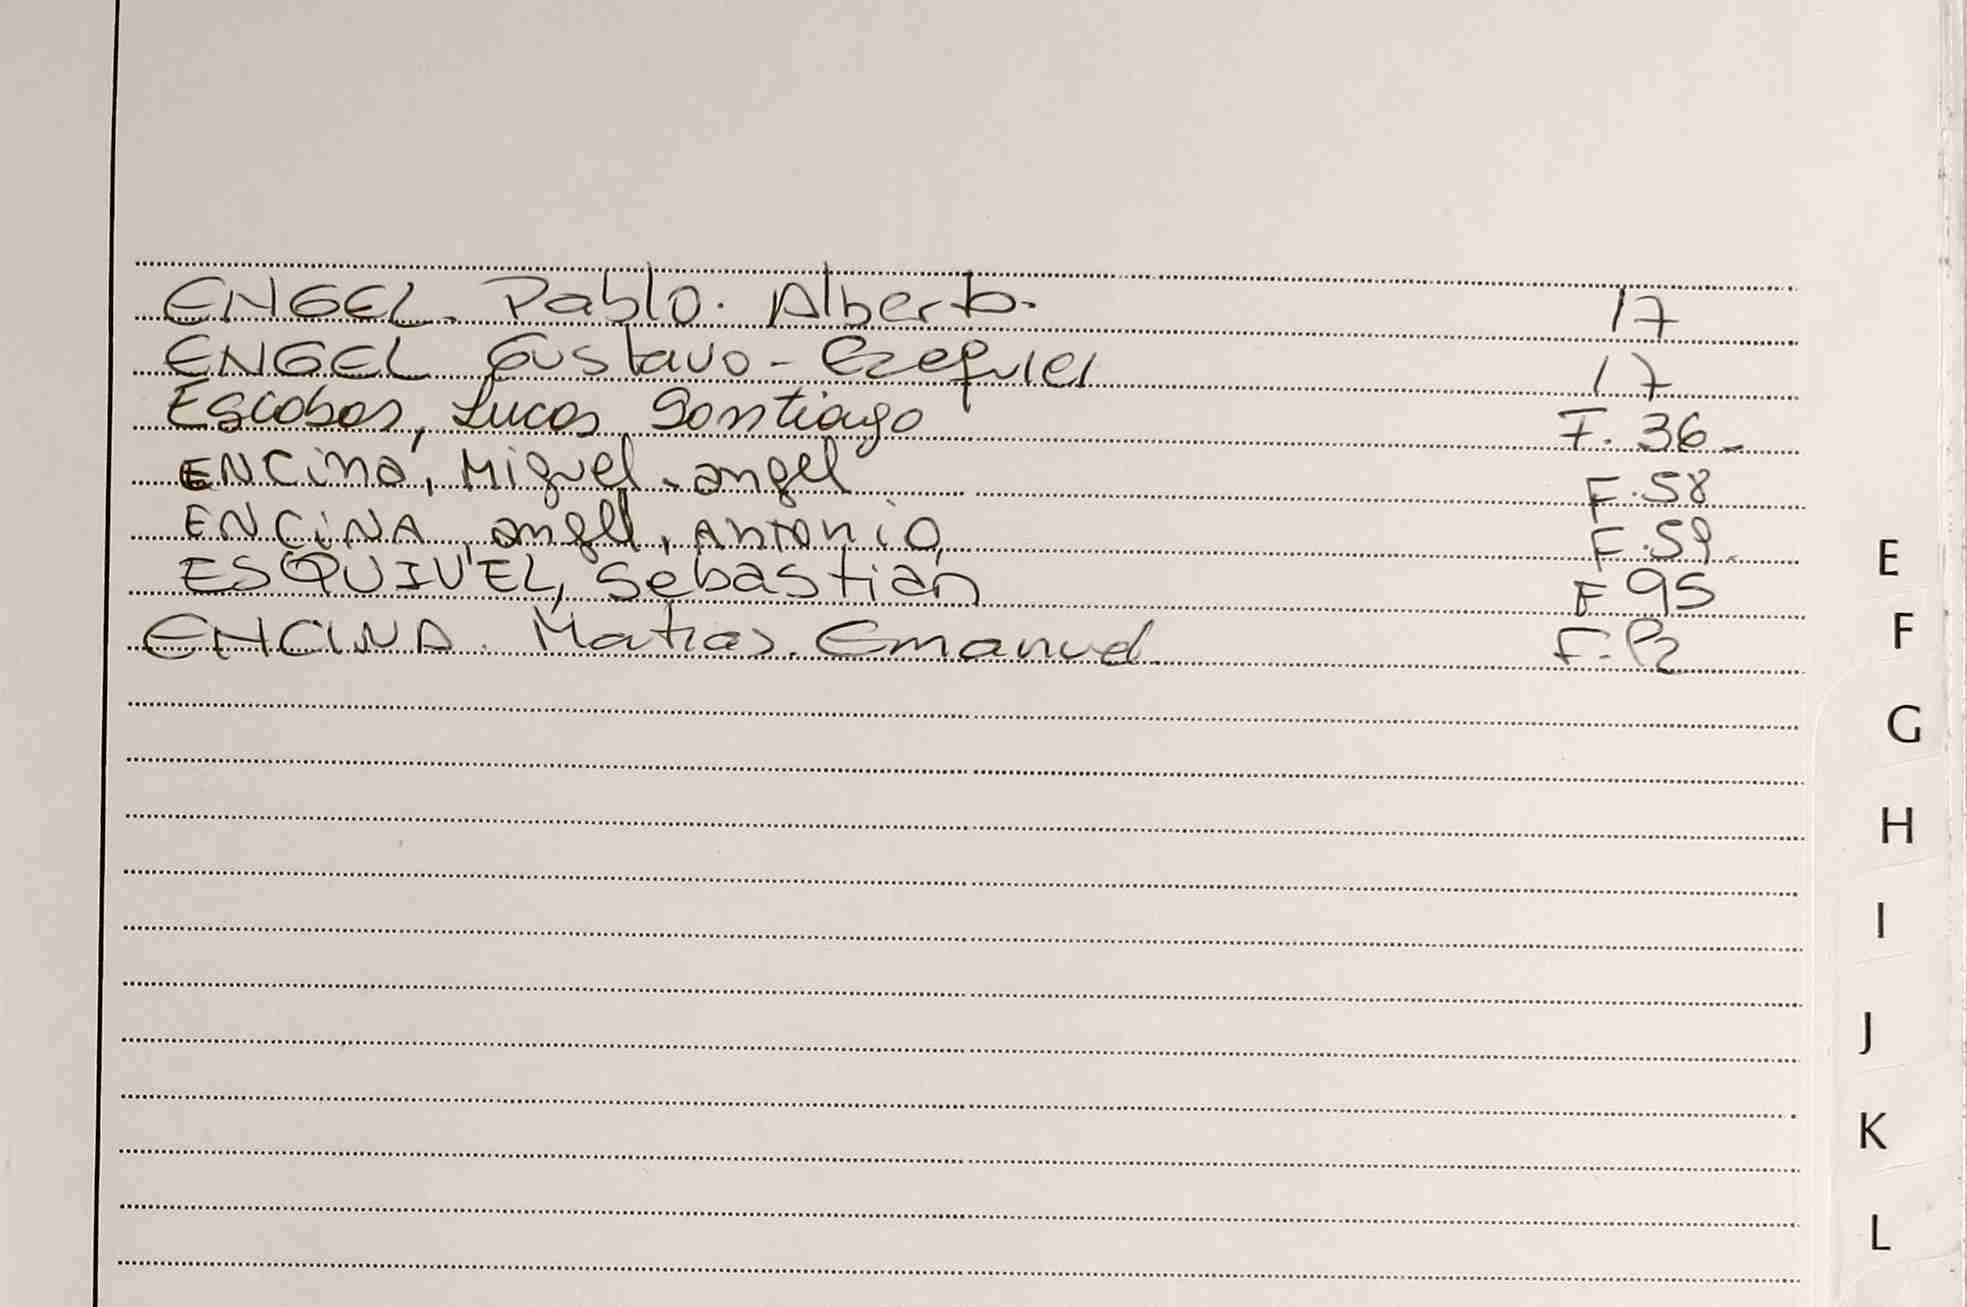 ENGEL. Pablo. Alberto. 17
ENGEL Gustavo - Ezequiel 17
Escobar, Lucas Santiago F. 36-
ENCina, Miguel angel F. 58
ENCINA, angel, Antonio F. 59
ESQUIVEL, Sebastian F 95
ENCINA. Matias. Emanuel. F.
E
F
G
H
I
J
K
L